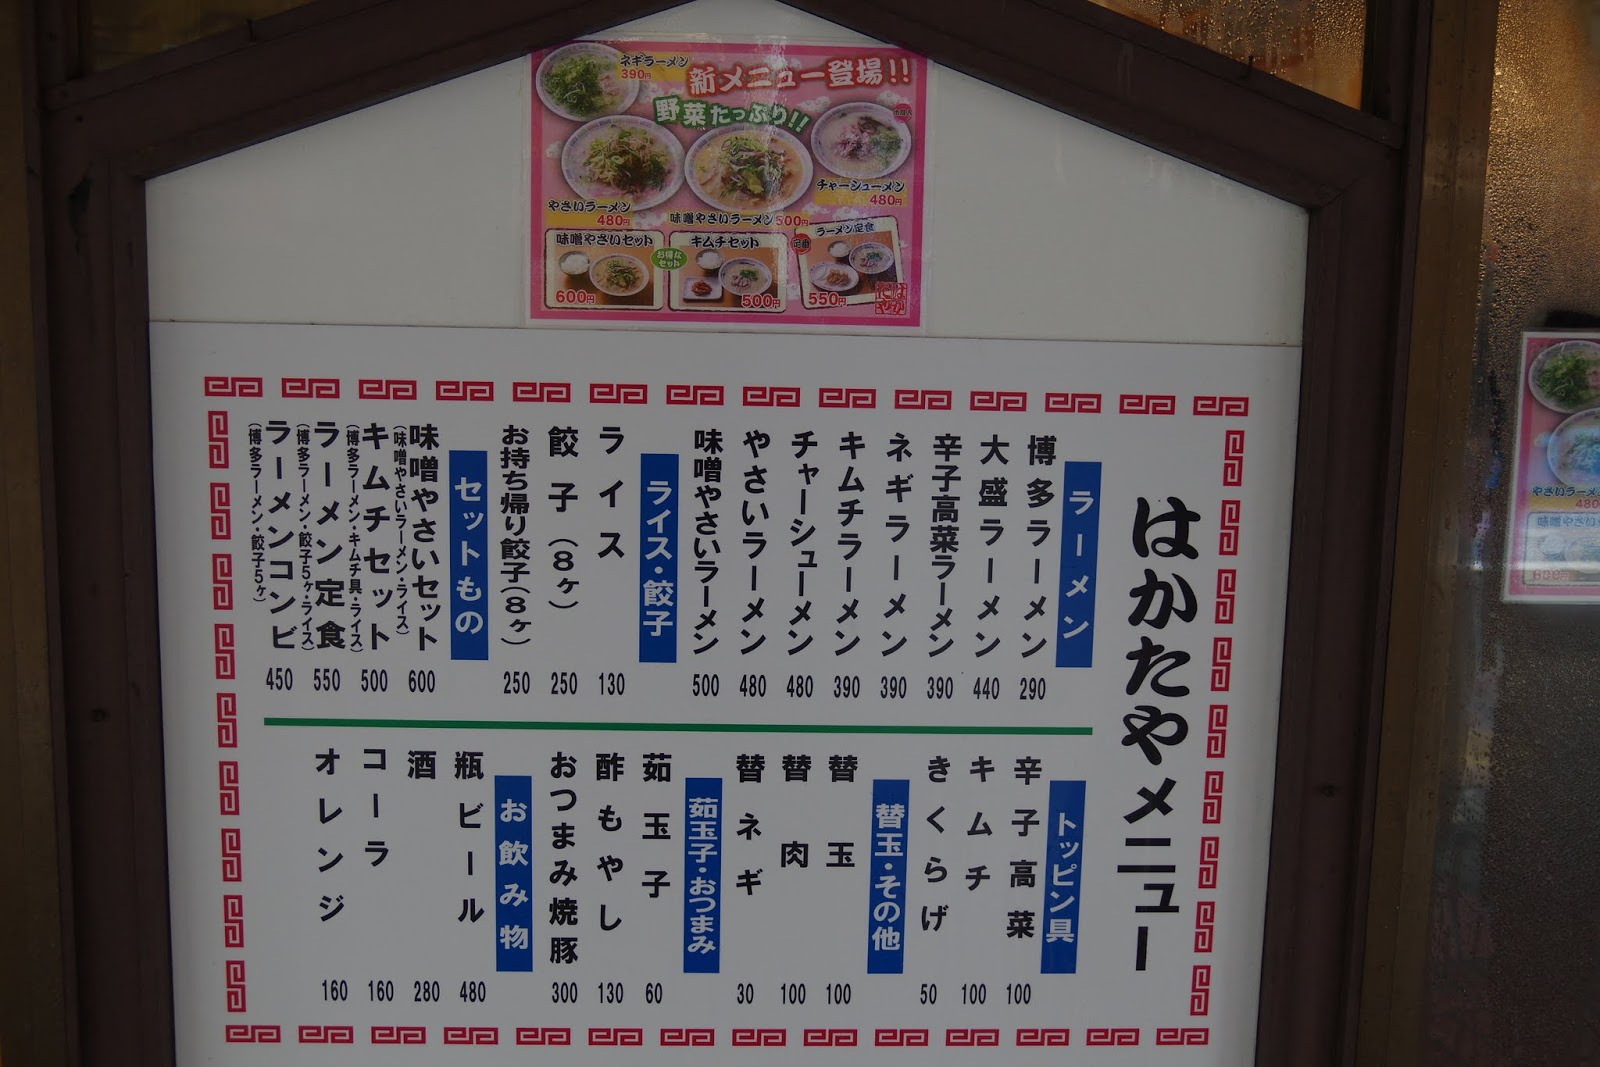 ネギラーメン
390円
新メニュー登場!!
野菜たっぷり!!
チャーシューメン
480円
やさいラーメン
480円
味噌やさいラーメン500円
味噌やさいセット
600円
お得なセット
キムチセット
500円
定番
ラーメン定食
550円
はかたや
はかたやメニュー
ラーメン
博多ラーメン 290
大盛ラーメン 440
辛子高菜ラーメン 390
ネギラーメン 390
キムチラーメン 390
チャーシューメン 480
やさいラーメン 480
味噌やさいラーメン 500
ライス・餃子
ライス 130
餃子(8ヶ) 250
お持ち帰り餃子(8ヶ) 250
セットもの
味噌やさいセット 600
(味噌やさいラーメン・ライス)
キムチセット 500
(博多ラーメン・キムチ具・ライス)
ラーメン定食 550
(博多ラーメン・餃子5ヶ・ライス)
ラーメンコンビ 450
(博多ラーメン・餃子5ヶ)
トッピン具
辛子高菜 100
キムチ 100
きくらげ 50
替玉・その他
替玉 100
替肉 100
替ネギ 30
茹玉子・おつまみ
茹玉子 60
酢もやし 130
おつまみ焼豚 300
お飲み物
瓶ビール 480
酒 280
コーラ 160
オレンジ 160
やさいラーメン
480
味噌やさい
600